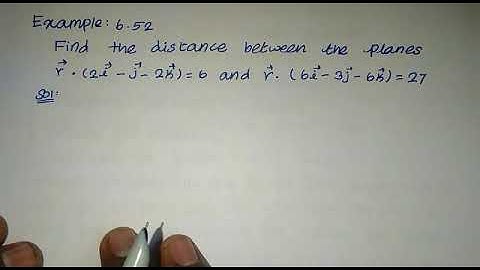 Example: 6.52
Find the distance between the planes
r⃗ · (2i⃗ − j⃗ − 2k⃗) = 6 and r⃗ · (6i⃗ − 3j⃗ − 6k⃗) = 27
Sol: